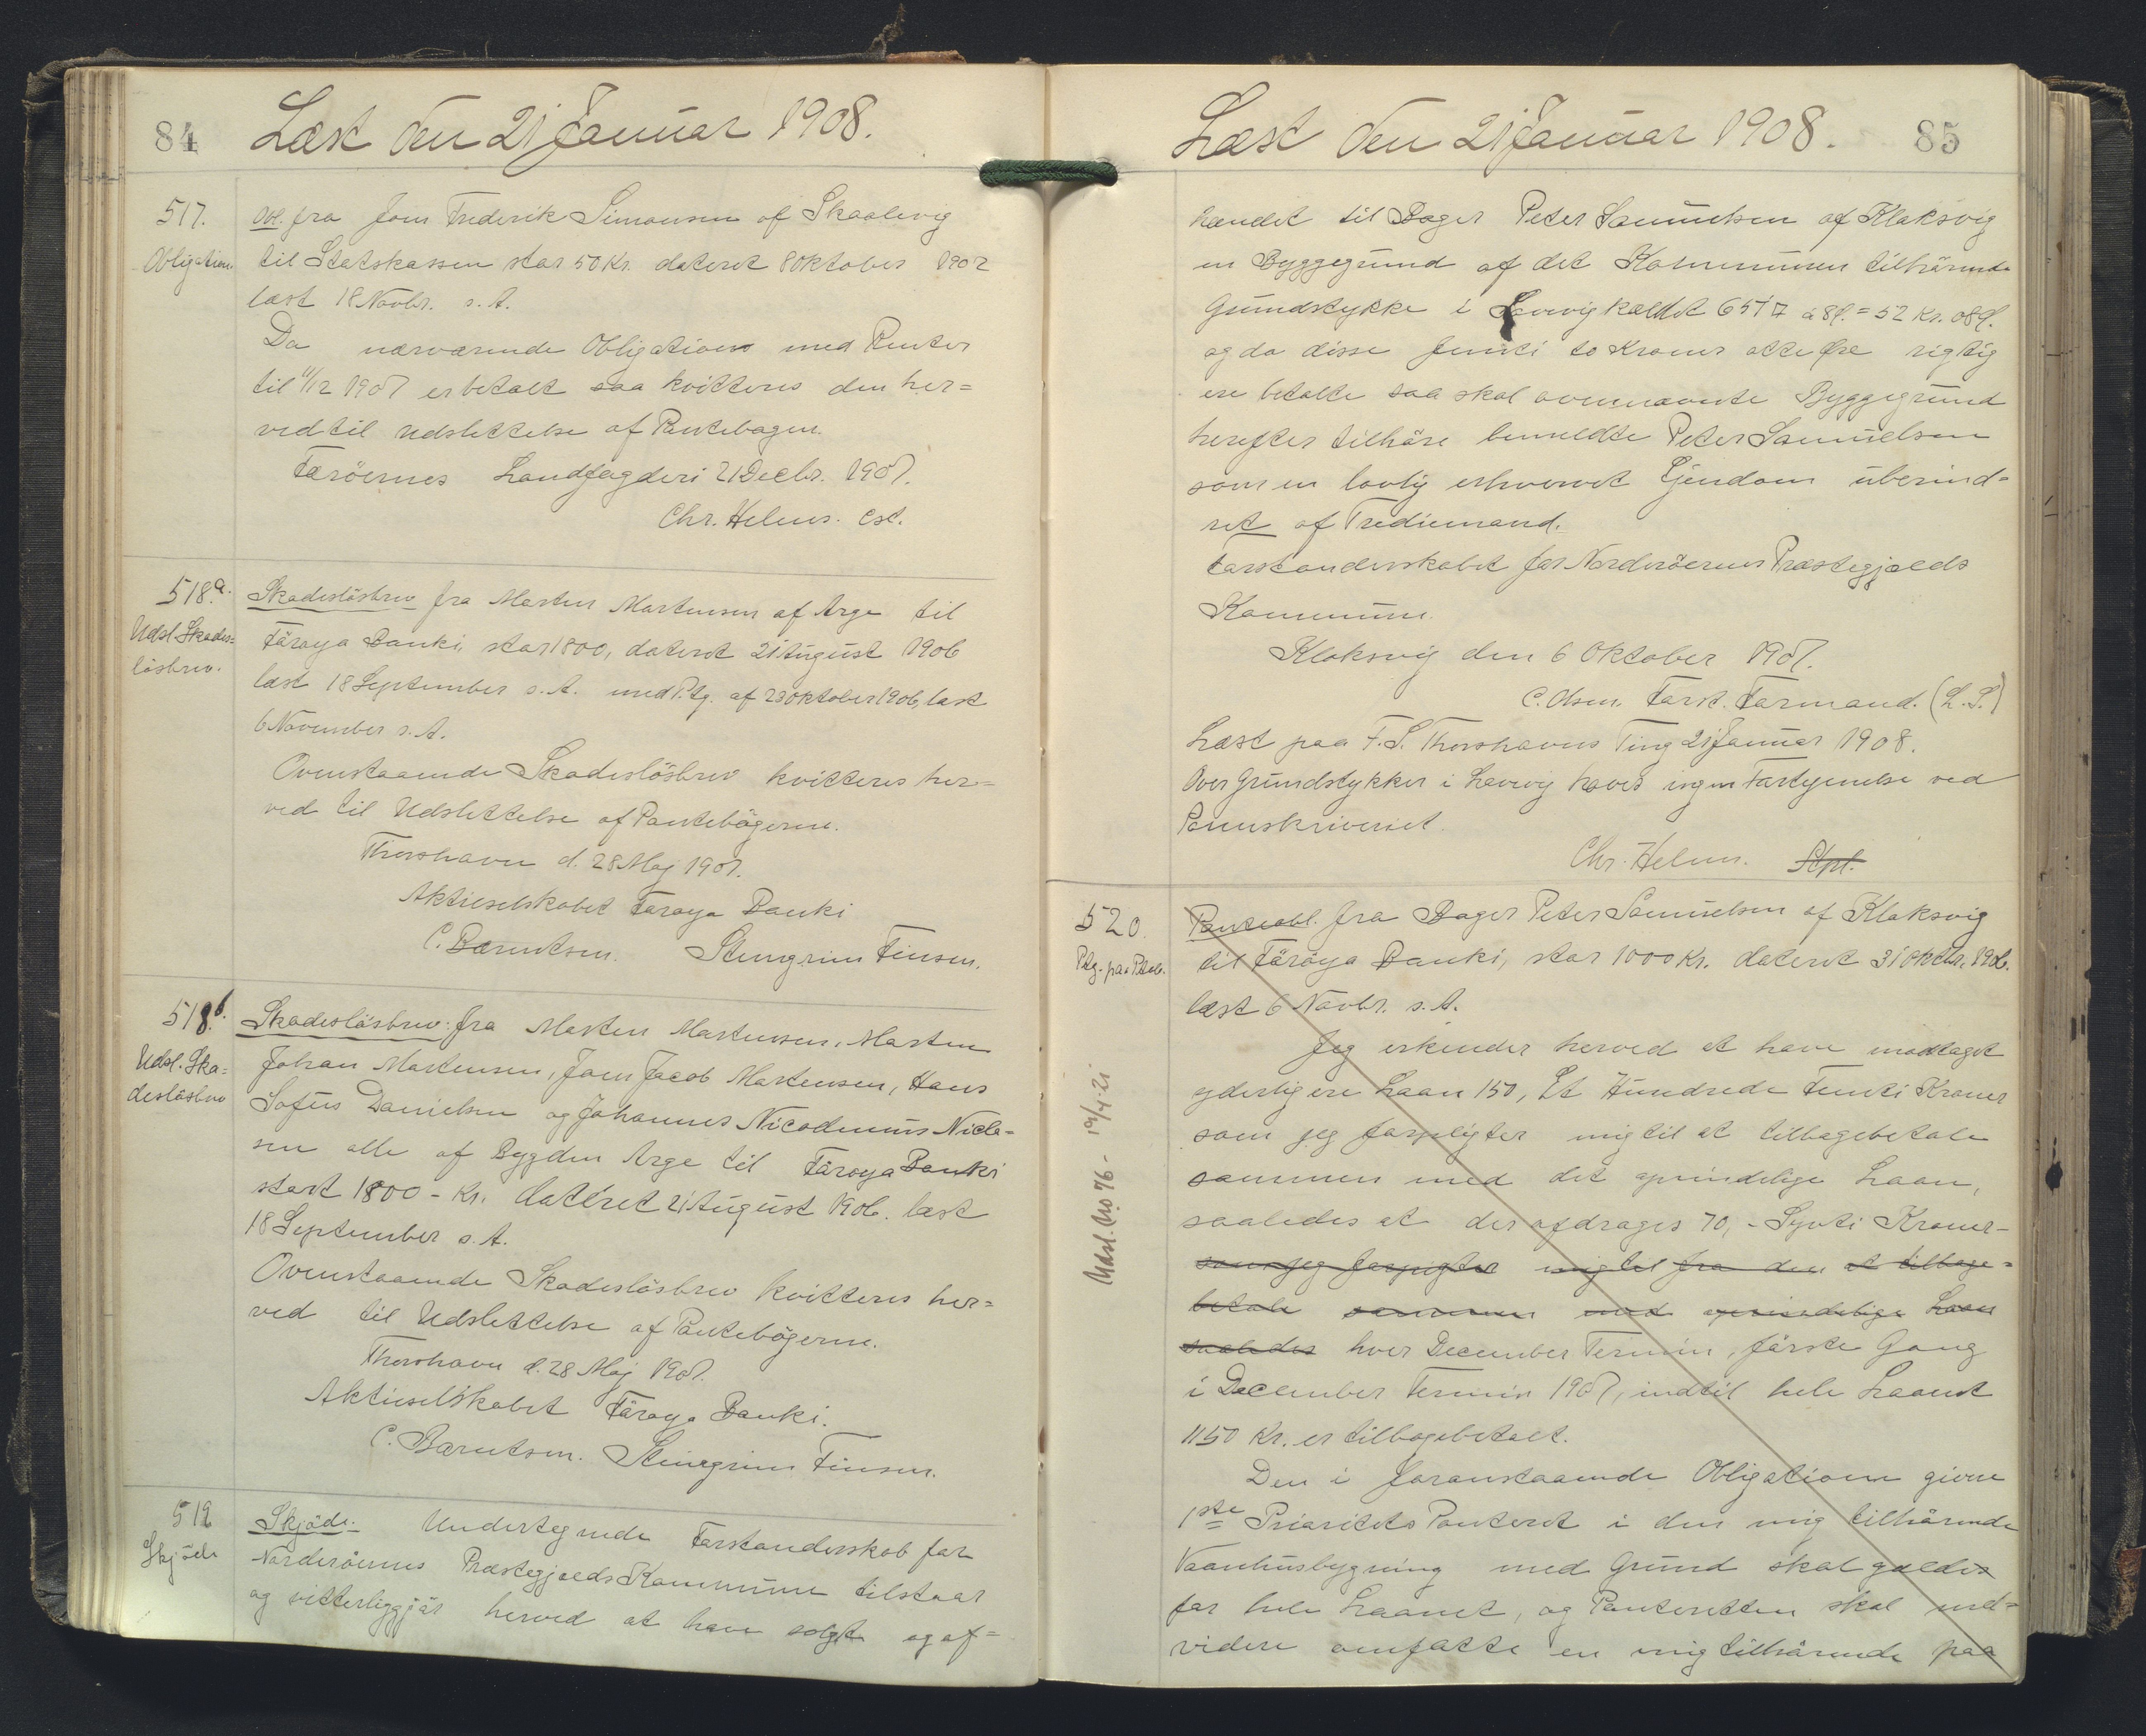 84
Læst den 21 Januar 1908.
517.
Obligation
Obl. fra Joen Frederik Simonsen af Skaalevig
til Statskassen stor 50 Kr. dateret 8 Oktober 1902
læst 18 Novbr. s. A.
Da nærværende Obligation med Renter
til 11/12 1907 er betalt saa kvitteres den her=
ved til Udslettelse af Pantebogen.
Færöernes Landfogderi 21 Decbr. 1907.
Chr. Helms. cst.
518a.
Udsl. Skades=
lösbrev.
Skadeslösbrev fra Morten Mortensen af Arge til
Föroya Banki, stor 1800, dateret 21 August 1906
læst 18 September s. A. med Ptg. af 23 Oktober 1906, læst
6 November s. A.
Ovenstaaende Skadeslösbrev kvitteres her=
ved til Udslettelse af Pantebögerne.
Thorshavn d. 28 Maj 1907.
Aktieselskabet Föroya Banki
C. Bærentsen. Steingrim Finsen.
518b.
Udsl. Ska=
deslösbrev
Skadeslösbrev fra Morten Mortensen, Morten
Johan Mortensen, Joen Jacob Mortensen, Hans
Sofus Danielsen og Johannes Nicodemus Nicla-
sen alle af Bygden Arge til Föroya Banki
stort 1800 - Kr. dateret 21 August 1906. læst
18 September s. A.
Ovenstaaende Skadeslösbrev kvitteres her=
ved til Udslettelse af Pantebögerne.
Thorshavn d. 28 Maj 1907.
Aktieselskabet Föroya Banki.
C. Bærentsen. Steingrim Finsen.
519
Skjöde
Skjöde. Undertegnede Forstanderskab for
Norderöernes Præstegjælds Kommune tilstaar
og vitterliggjör herved at have solgt og af=
Læst den 21 Januar 1908.
85
hændet til Bager Peter Samuelsen af Klaksvig
en Byggegrund af det Kommunen tilhörende
Grundstykke i kaldet à 8 Ø. = 52 Kr. 08 Ø.
og da disse femti to Kroner otte Øre rigtig
ere betalte saa skal ovennævnte Byggegrund
herefter tilhöre bemeldte Peter Samuelsen
som en lovlig erhvervet Ejendom uberind=
ret af Trediemand.
Forstanderskabet for Norderöernes Præstegjælds
Kommune.
Klaksvig den 6 Oktober 1907.
C. Olsen. Forst. Formand. (L. S.)
Læst paa F. S. Thorshavns Ting 21 Januar 1908.
Over Grundstykker i haves ingen Fortegnelse ved
Sorenskriveriet.
Chr. Helms. Stpl.
520.
Ptg. paa Ptob.
Udsl. No 76 - 19/4-21
Panteobl. fra Bager Peter Samuelsen af Klaksvig
til Föröya Banki, stor 1000 Kr. dateret 31 Oktbr. 1906.
læst 6 Novbr. s. A.
Jeg erkender herved at have modtaget
yderligere Laan 150, Et Hundrede Femti Kroner
som jeg forpligter mig til at tilbagebetale
sammen med det oprindelige Laan,
saaledes at der afdrages 70, - Sytti Kroner -
som jeg forpligter mig til fra den at tilbage=
betale sammen med oprindelige Laan
saaledes hver December Termin, förste Gang
i December Termin 1907, indtil hele Laanet
1150 Kr. er tilbagebetalt.
Den i foranstaaende Obligation givne
1ste Prioritets Panteret i den mig tilhörende
Vaanhusbygning med Grund skal gælde
for hele Laanet, og Panteretten skal end=
videre omfatte en mig tilhörende paa